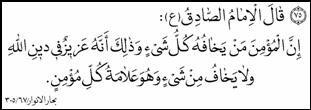 ٧٥ قالَ الْاِمامُ الصّادِقُ(ع):
اِنَّ الْمُؤْمِنَ مَنْ يَخافُهُ كُلُّ شَىْءٍ وَذٰلِكَ اَنَّهُ عَزيزٌ فى دينِ اللهِ
وَلا يَخافُ مِنْ شَىْءٍ وَهُوَ عَلامَةُ كُلِّ مُؤْمِنٍ.
بحار الانوار/٦٧/٣٠٥